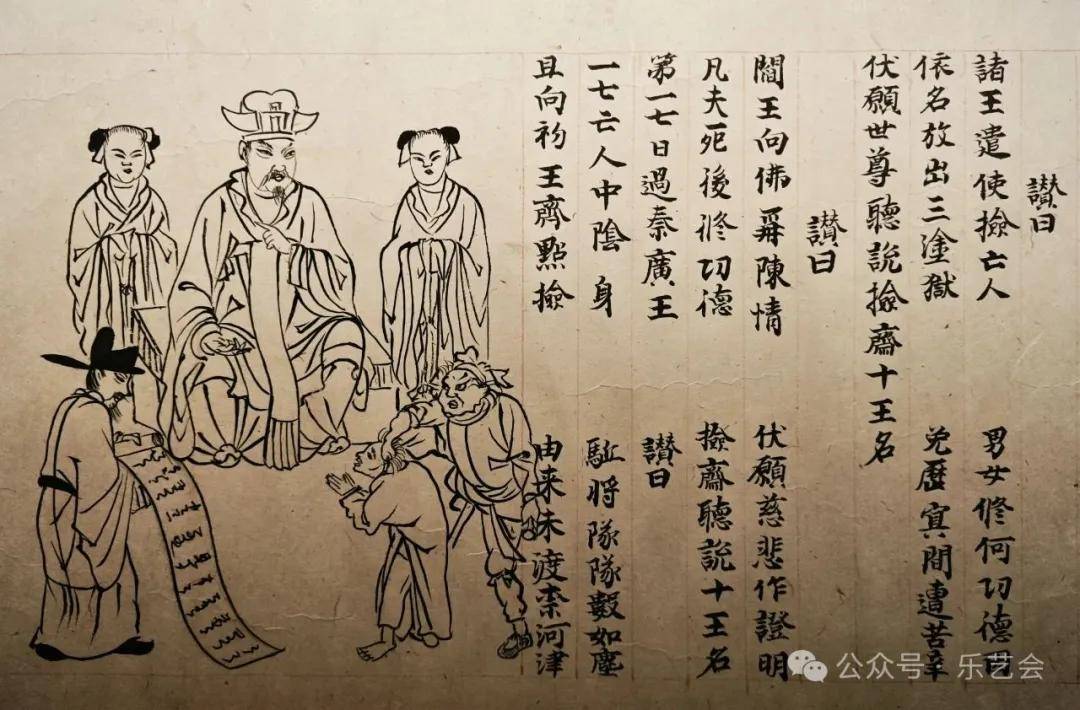 讚曰
諸王遣使撿亡人 男女修何功德因
依名放出三塗獄 免歷冥間遭苦辛
伏願世尊聽説撿齋十王名
讚曰
閻王向佛再陳情 伏願慈悲作證明
凡夫死後修功德 撿齋聽説十王名
第一七日過秦廣王 讚曰
一七亡人中陰身 駈將隊隊數如塵
且向初王齊點撿 由来未渡柰河津
公众号·乐艺会